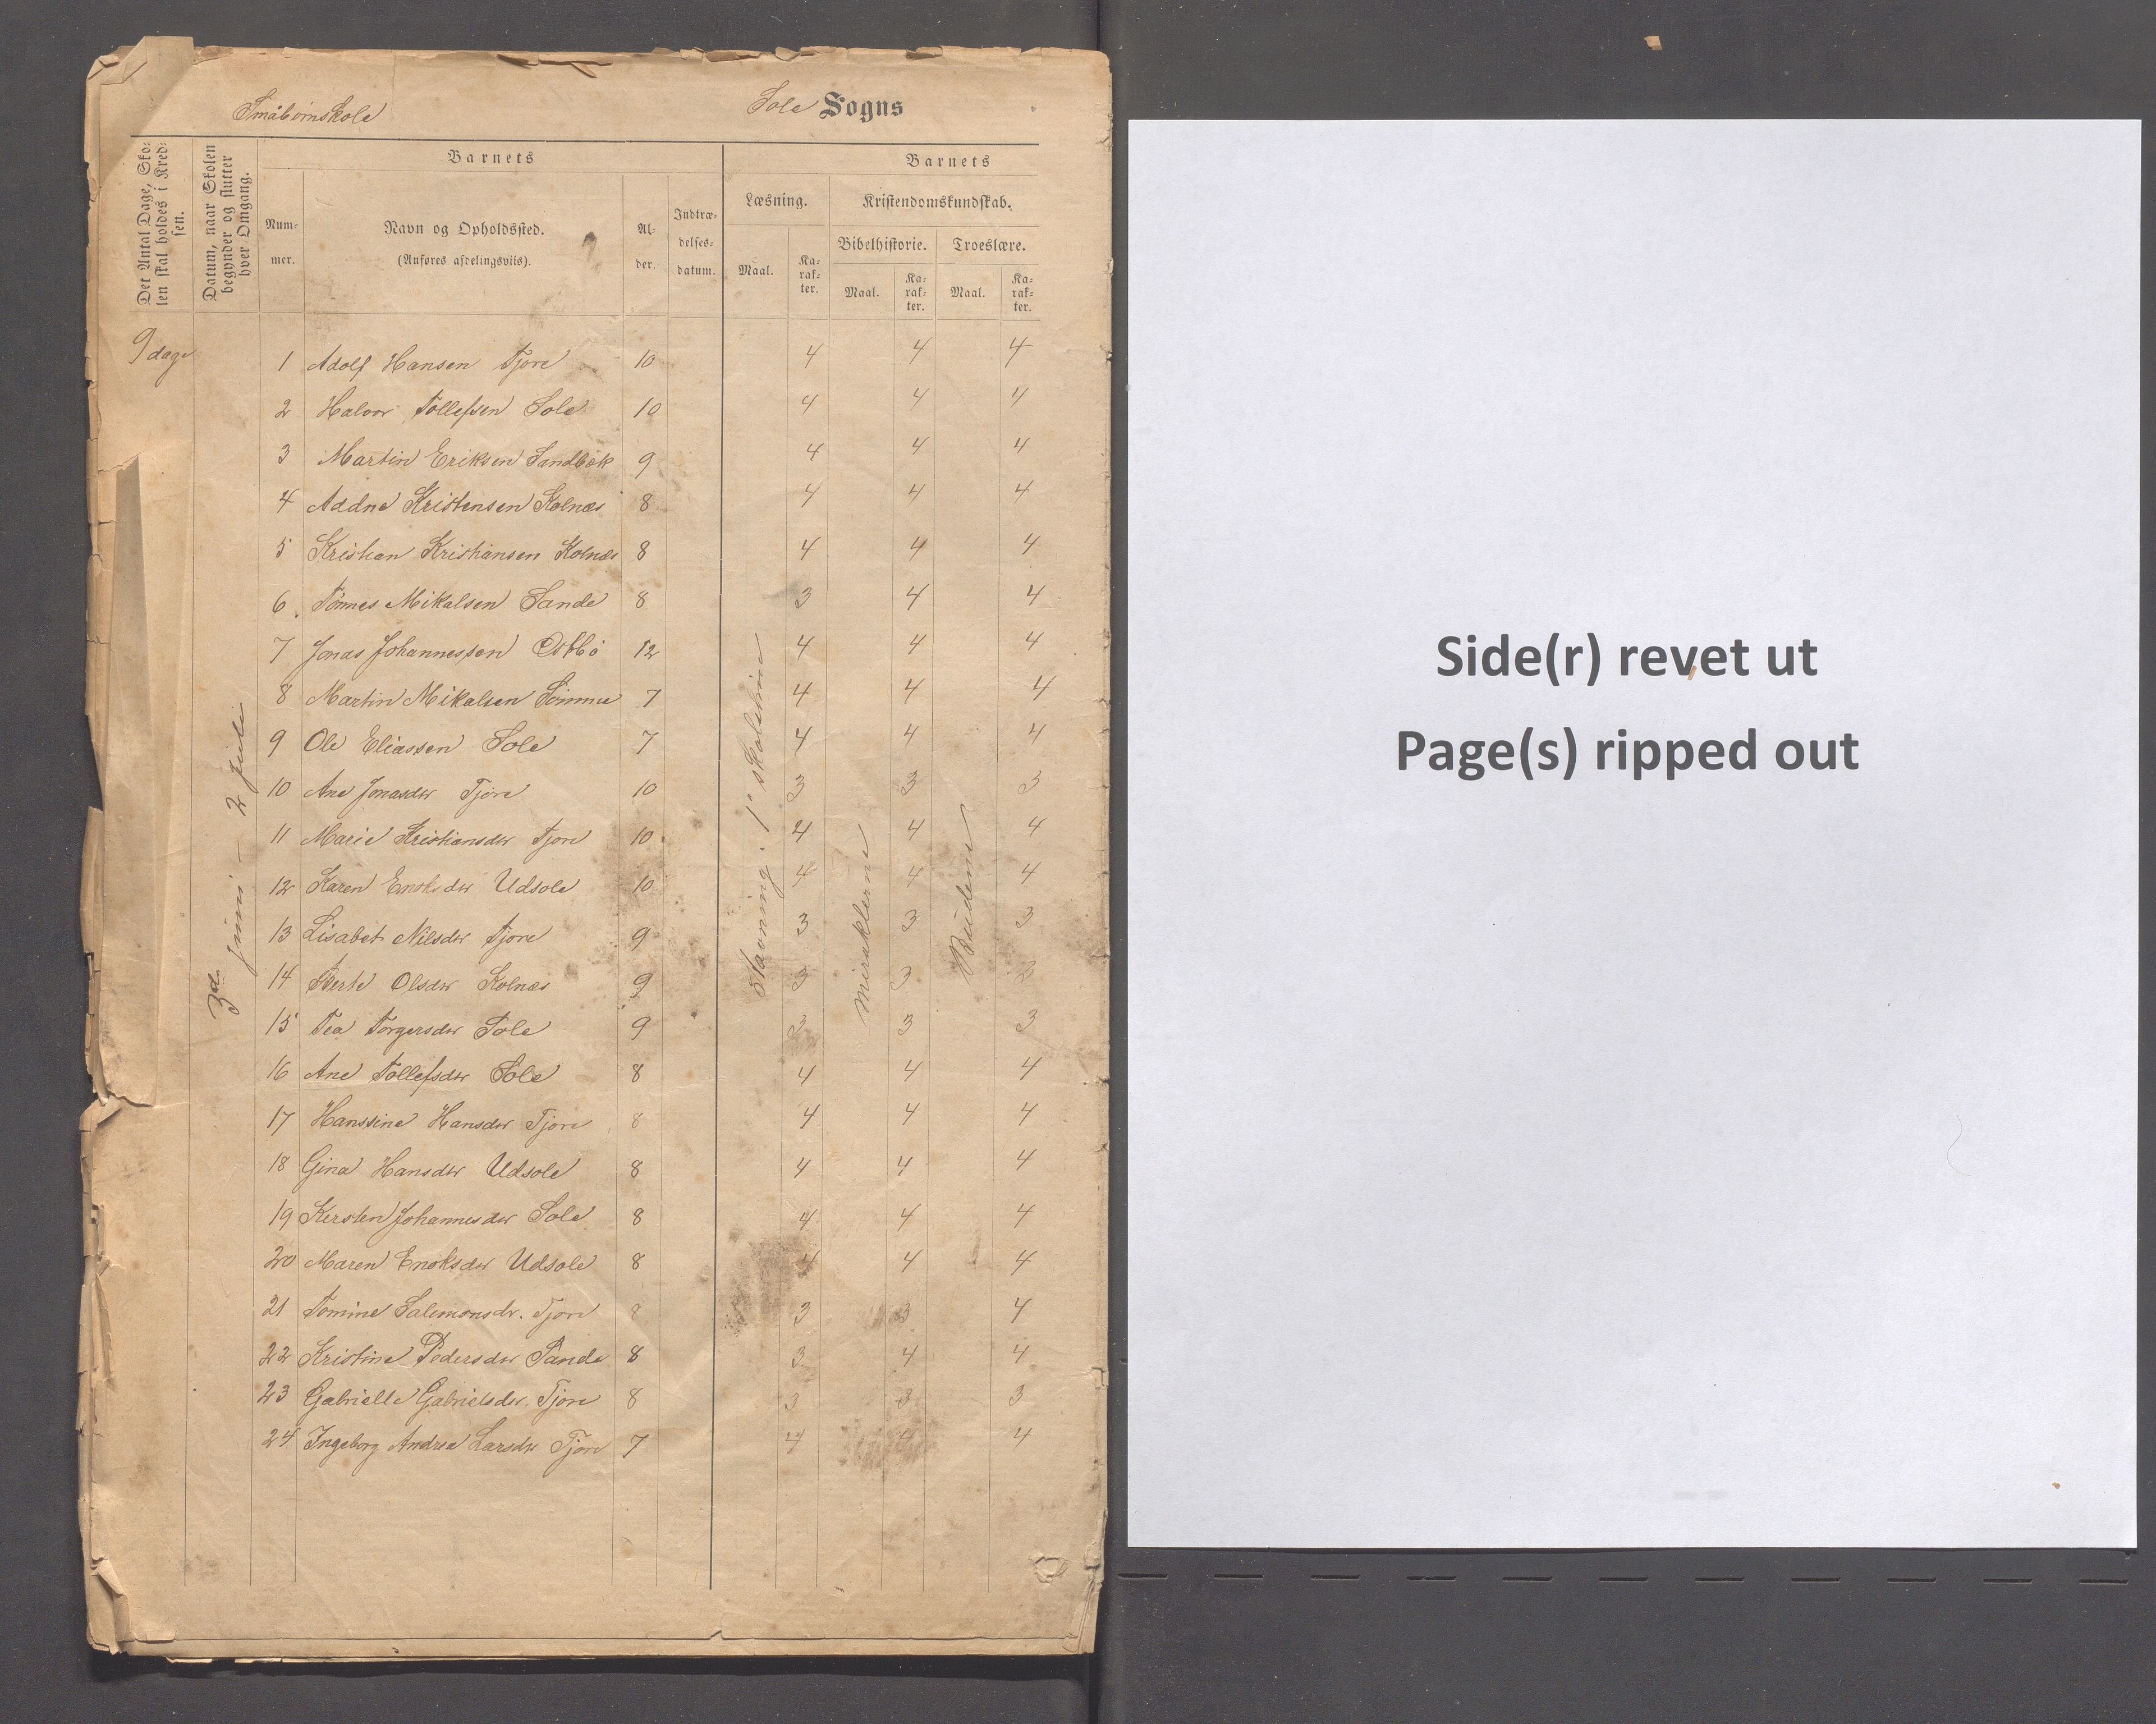 Småbørnskole
Sole Sogns
Det Antal Dage, Sko-
len skal holdes i Kred-
sen.
Datum, naar Skolen
begynder og slutter
hver Omgang.
Barnets
Num-
mer.
Navn og Opholdssted.
(Anføres afdelingsviis).
Al-
der.
Indtræ-
delses-
datum.
Barnets
Læsning.
Maal.
Ka-
rak-
ter.
Kristendomskundskab.
Bibelhistorie.
Maal.
Ka-
rak-
ter.
Troeslære.
Maal.
Ka-
rak-
ter.
9 dage
3die juni - 2 juli
Stavning i 1ste skoletrin
miraklerne
Budene
1 Adolf Hansen Tjore 10 4 4 4
2 Halvor Tollefsen Sole 10 4 4 4
3 Martin Eriksen Sandbæk 9 4 4 4
4 Addne Kristensen Kolnæs 8 4 4 4
5 Kristian Kristiansen Kolnæs 8 4 4 4
6 Tønnes Mikalsen Sande 8 3 4 4
7 Jonas Johannessen 12 4 4 4
8 Martin Mikalsen Sømme 7 4 4 4
9 Ole Eliassen Sole 7 4 4 4
10 Ane Jonasdtr Tjore 10 3 3 3
11 Marie Kristiansdtr Tjore 10 4 4 4
12 Karen Enoksdtr Udsole 10 4 4 4
13 Lisabet Nilsdtr Tjore 9 3 3 3
14 Berte Olsdtr Kolnæs 9 3 3 3
15 Tea Torgersdtr Sole 9 3 3 3
16 Ane Tollefsdtr Sole 8 4 4 4
17 Hanssine Hansdtr Tjore 8 4 4 4
18 Gina Hansdtr Udsole 8 4 4 4
19 Kersten Johannesdtr Sole 8 4 4 4
20 Maren Enoksdtr Udsole 8 4 4 4
21 Tomine Salemonsdr. Tjore 8 3 3 4
22 Kristine Pedersdtr Sande 8 3 4 4
23 Gabrielle Gabrielsdtr. Tjore 8 3 3 3
24 Ingeborg Andrea Larsdtr Tjore 7 4 4 4
Side(r) revet ut
Page(s) ripped out